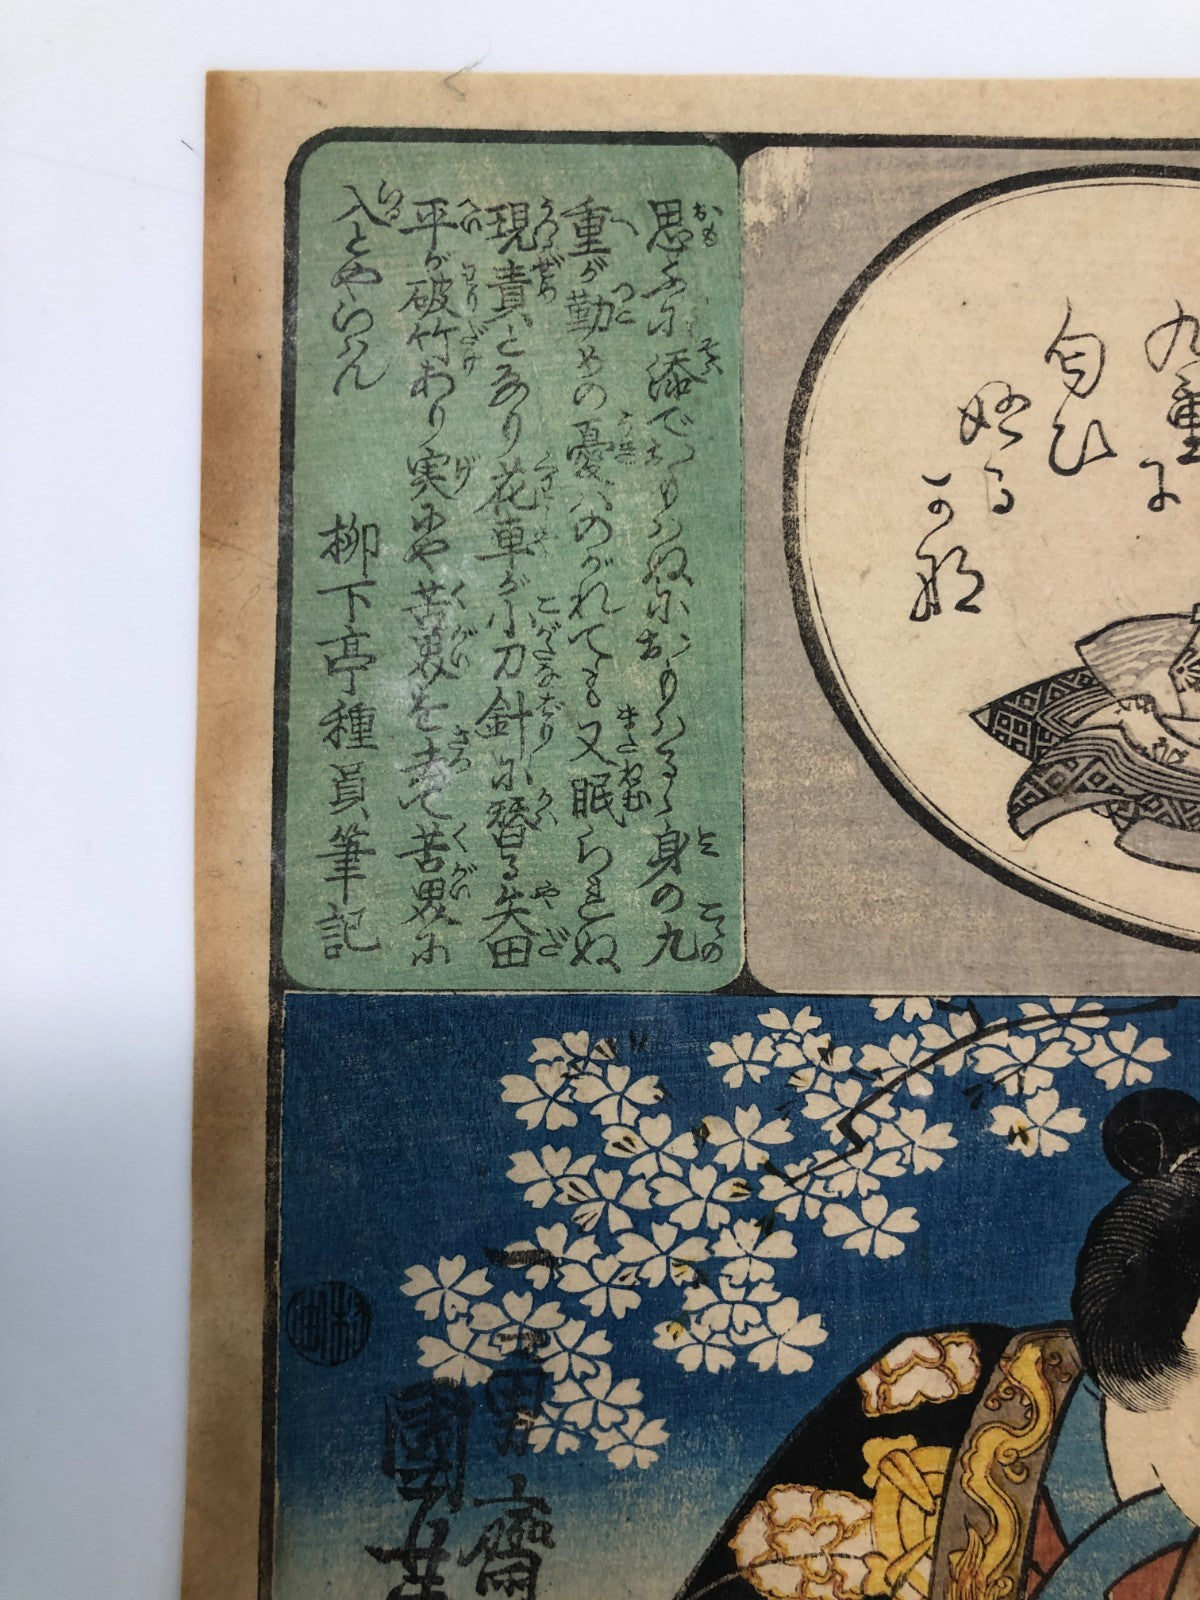 思ふに添でおもはぬにおもはるゝ身の九
重が勤めの憂はのがれても又眠られぬ
現責となり花車が小刀針に替る矢田
平が破竹あり実にや苦界を去て苦界に
入とやらん
柳下亭種員筆記
九重に
匂ひ
ぬる
かな
一勇齋
國芳